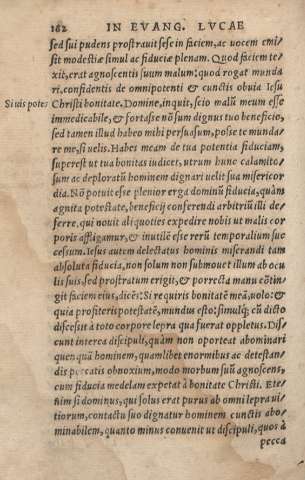 162 IN EVANG. LVCAE
sed sui pudens prostrauit sese in faciem, ac vocem emi-
sit modestiæ simul ac fiduciæ plenam. Quod faciem te-
xit, erat agnoscentis suum malum: quod rogat munda
ri, confidentis de omnipotenti & cunctis obuia Iesu
Si uis potes
Christi bonitate. Domine, inquit, scio malũ meum esse
immedicabile, & fortasse nõ sum dignus tuo beneficio,
sed tamen illud habeo mihi persuasum, posse te munda-
re me, si uelis. Habes meam de tua potentia fiduciam,
superest ut tua bonitas iudicet, utrum hunc calamito-
sum ac deploratũ hominem dignari uelit sua misericor
dia. Nõ potuit esse plenior erga dominũ fiducia, quàm
agnita potestate, beneficij conferendi arbitriũ illi de-
ferre, qui nouit aliquoties expedire nobis ut malis cor
poris affligamur, & inutilẽ esse rerũ temporalium suc
cessum. Iesus autem delectatus hominis miserandi tam
absoluta fiducia, non solum non submouet illum ab ocu
lis suis, sed prostratum erigit, & porrecta manu cõtin-
git faciem eius, dicẽs: Si requiris bonitatẽ meã, uolo: &
quia profiteris potestatẽ, mundus esto: simulq́; cũ dicto
discessit à toto corpore lepra qua fuerat oppletus. Dis
cunt interea discipuli, quàm non oporteat abominari
quenquã hominem, quamlibet enormibus ac detestan-
dis peccatis obnoxium, modo morbum suũ agnoscens,
cum fiducia medelam expetat à bonitate Christi. Ete-
nim si dominus, qui solus erat purus ab omni lepra ui-
tiorum, contactu suo dignatur hominem cunctis abo-
minabilem, quanto minus conuenit ut discipuli, quos à
pecca